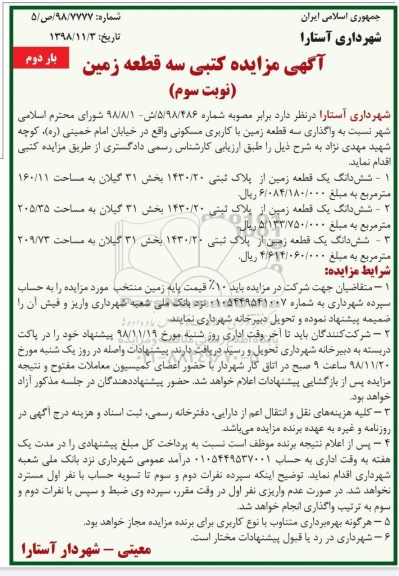 جمهوری اسلامی ایران
شماره: ۹۸/۷۷۷۷/ص/۵
شهرداری آستارا
تاریخ: ۱۳۹۸/۱۱/۳
بار دوم
آگهی مزایده کتبی سه قطعه زمین
(نوبت سوم)
شهرداری آستارا درنظر دارد برابر مصوبه شماره ۵/۹۸/۴۸۶/ش- ۹۸/۸/۱ شورای محترم اسلامی
شهر نسبت به واگذاری سه قطعه زمین با کاربری مسکونی واقع در خیابان امام خمینی (ره)، کوچه
شهید مهدی نژاد به شرح ذیل را طبق ارزیابی کارشناس رسمی دادگستری از طریق مزایده کتبی
اقدام نماید.
۱ - شش‌دانگ یک قطعه زمین از پلاک ثبتی ۱۴۳۰/۲۰ بخش ۳۱ گیلان به مساحت ۱۶۰/۱۱
مترمربع به مبلغ ۶/۰۸۴/۱۸۰/۰۰۰ ریال.
۲ - شش‌دانگ یک قطعه زمین از پلاک ثبتی ۱۴۳۰/۲۰ بخش ۳۱ گیلان به مساحت ۲۰۵/۳۵
مترمربع به مبلغ ۵/۱۳۳/۷۵۰/۰۰۰ ریال.
۳ - شش‌دانگ یک قطعه زمین از پلاک ثبتی ۱۴۳۰/۲۰ بخش ۳۱ گیلان به مساحت ۲۰۹/۷۳
مترمربع به مبلغ ۴/۶۱۴/۰۶۰/۰۰۰ ریال.
شرایط مزایده:
۱ – متقاضیان جهت شرکت در مزایده باید ۱۰٪ قیمت پایه زمین منتخب مورد مزایده را به حساب
سپرده شهرداری به شماره ۰۱۰۵۴۴۹۵۴۱۰۰۷ نزد بانک ملی شعبه شهرداری واریز و فیش آن را
ضمیمه پیشنهاد نموده و تحویل دبیرخانه شهرداری نمایند.
۲ – شرکت‌کنندگان باید تا آخر وقت اداری روز شنبه مورخ ۹۸/۱۱/۱۹ پیشنهاد خود را در پاکت
دربسته به دبیرخانه شهرداری تحویل و رسید دریافت دارند. پیشنهادات واصله در روز یک شنبه مورخ
۹۸/۱۱/۲۰ ساعت ۹ صبح در اتاق کار شهردار با حضور اعضای کمیسیون معاملات مفتوح و نتیجه
مزایده پس از بازگشایی پیشنهادات اعلام خواهد شد. حضور پیشنهاددهندگان در جلسه مذکور آزاد
خواهد بود.
۳ – کلیه هزینه‌های نقل و انتقال اعم از دارایی، دفترخانه رسمی، ثبت اسناد و هزینه درج آگهی در
روزنامه و غیره به عهده برنده مزایده می‌باشد.
۴ – پس از اعلام نتیجه برنده موظف است نسبت به پرداخت کل مبلغ پیشنهادی را در مدت یک
هفته به وقت اداری به حساب ۰۱۰۵۴۴۹۵۳۷۰۰۱ درآمد عمومی شهرداری نزد بانک ملی شعبه
شهرداری اقدام نماید. توضیح اینکه سپرده نفرات دوم و سوم تا تسویه حساب با نفر اول مسترد
نخواهد شد. در صورت عدم واریزی نفر اول در وقت مقرر، سپرده وی ضبط و سپس با نفرات دوم و
سوم به ترتیب واگذاری انجام خواهد شد.
۵ – هرگونه بهره‌برداری متناوب با نوع کاربری برای برنده مزایده مجاز خواهد بود.
۶ – شهرداری در رد یا قبول پیشنهادات مختار است.
معیتی – شهردار آستارا